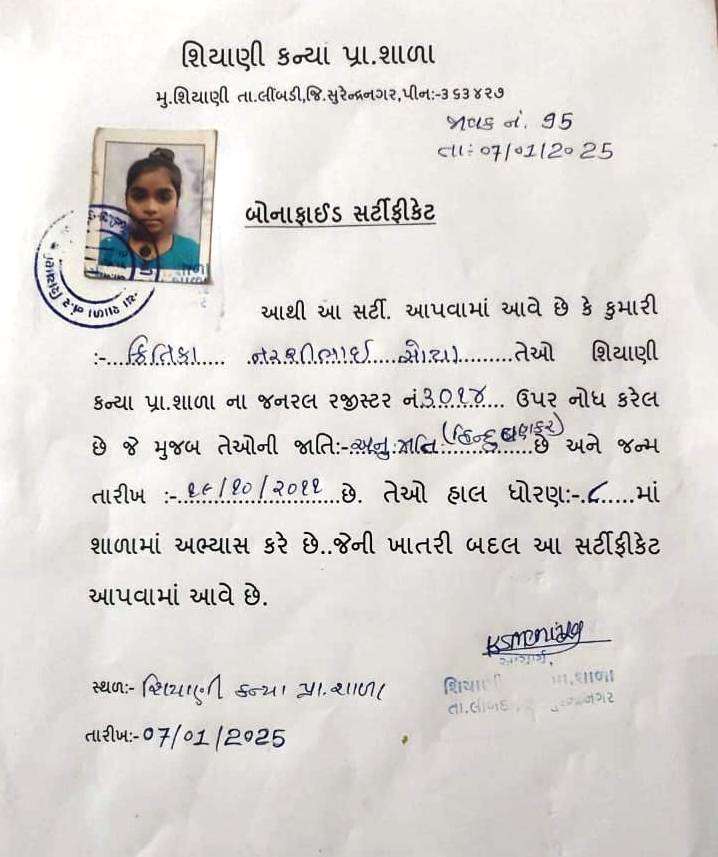 શિયાણી કન્યા પ્રા.શાળા
મુ.શિયાણી તા.લીંબડી,જિ.સુરેન્દ્રનગર,પીન:-૩૬૩૪૨૭
જાવક નં. 95
તા:07/01/2025
બોનાફાઈડ સર્ટીફીકેટ
આથી આ સર્ટી. આપવામાં આવે છે કે કુમારી
:-...ક્રિતિકા.... .નરશીભાઈ.........તેઓ શિયાણી
કન્યા પ્રા.શાળા ના જનરલ રજીસ્ટર નં.૩૦૧૪.... ઉપર નોધ કરેલ
છે જે મુજબ તેઓની જાતિ:-.અનુ.જાતિ.(હિન્દુ વણકર)......છે અને જન્મ
તારીખ :-..૧૯/૧૦/૨૦૧૧.....છે. તેઓ હાલ ધોરણ:-.૮.....માં
શાળામાં અભ્યાસ કરે છે..જેની ખાતરી બદલ આ સર્ટીફીકેટ
આપવામાં આવે છે.
આચાર્ય,
સ્થળ:- શિયાણી કન્યા પ્રા.શાળા
શિયા પ્રા.શાળા
તારીખ:-07/01/2025